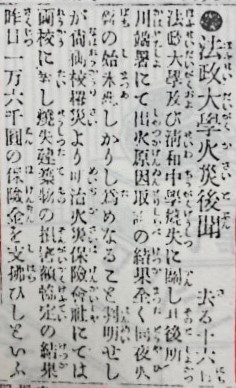 法政大學火災後聞 去る十六日
法政大學及び淸和中學燒失に關し其後所
川端署にて出火原因取調の結果全く同夜火
の始末惡しかりし爲めなること判明せし
が尙兩校罹災より明治火災保險會社にては
兩校に對し燒失建築物の損害額協定の結果
昨日一万六千圓の保險金を支拂ひしといふ